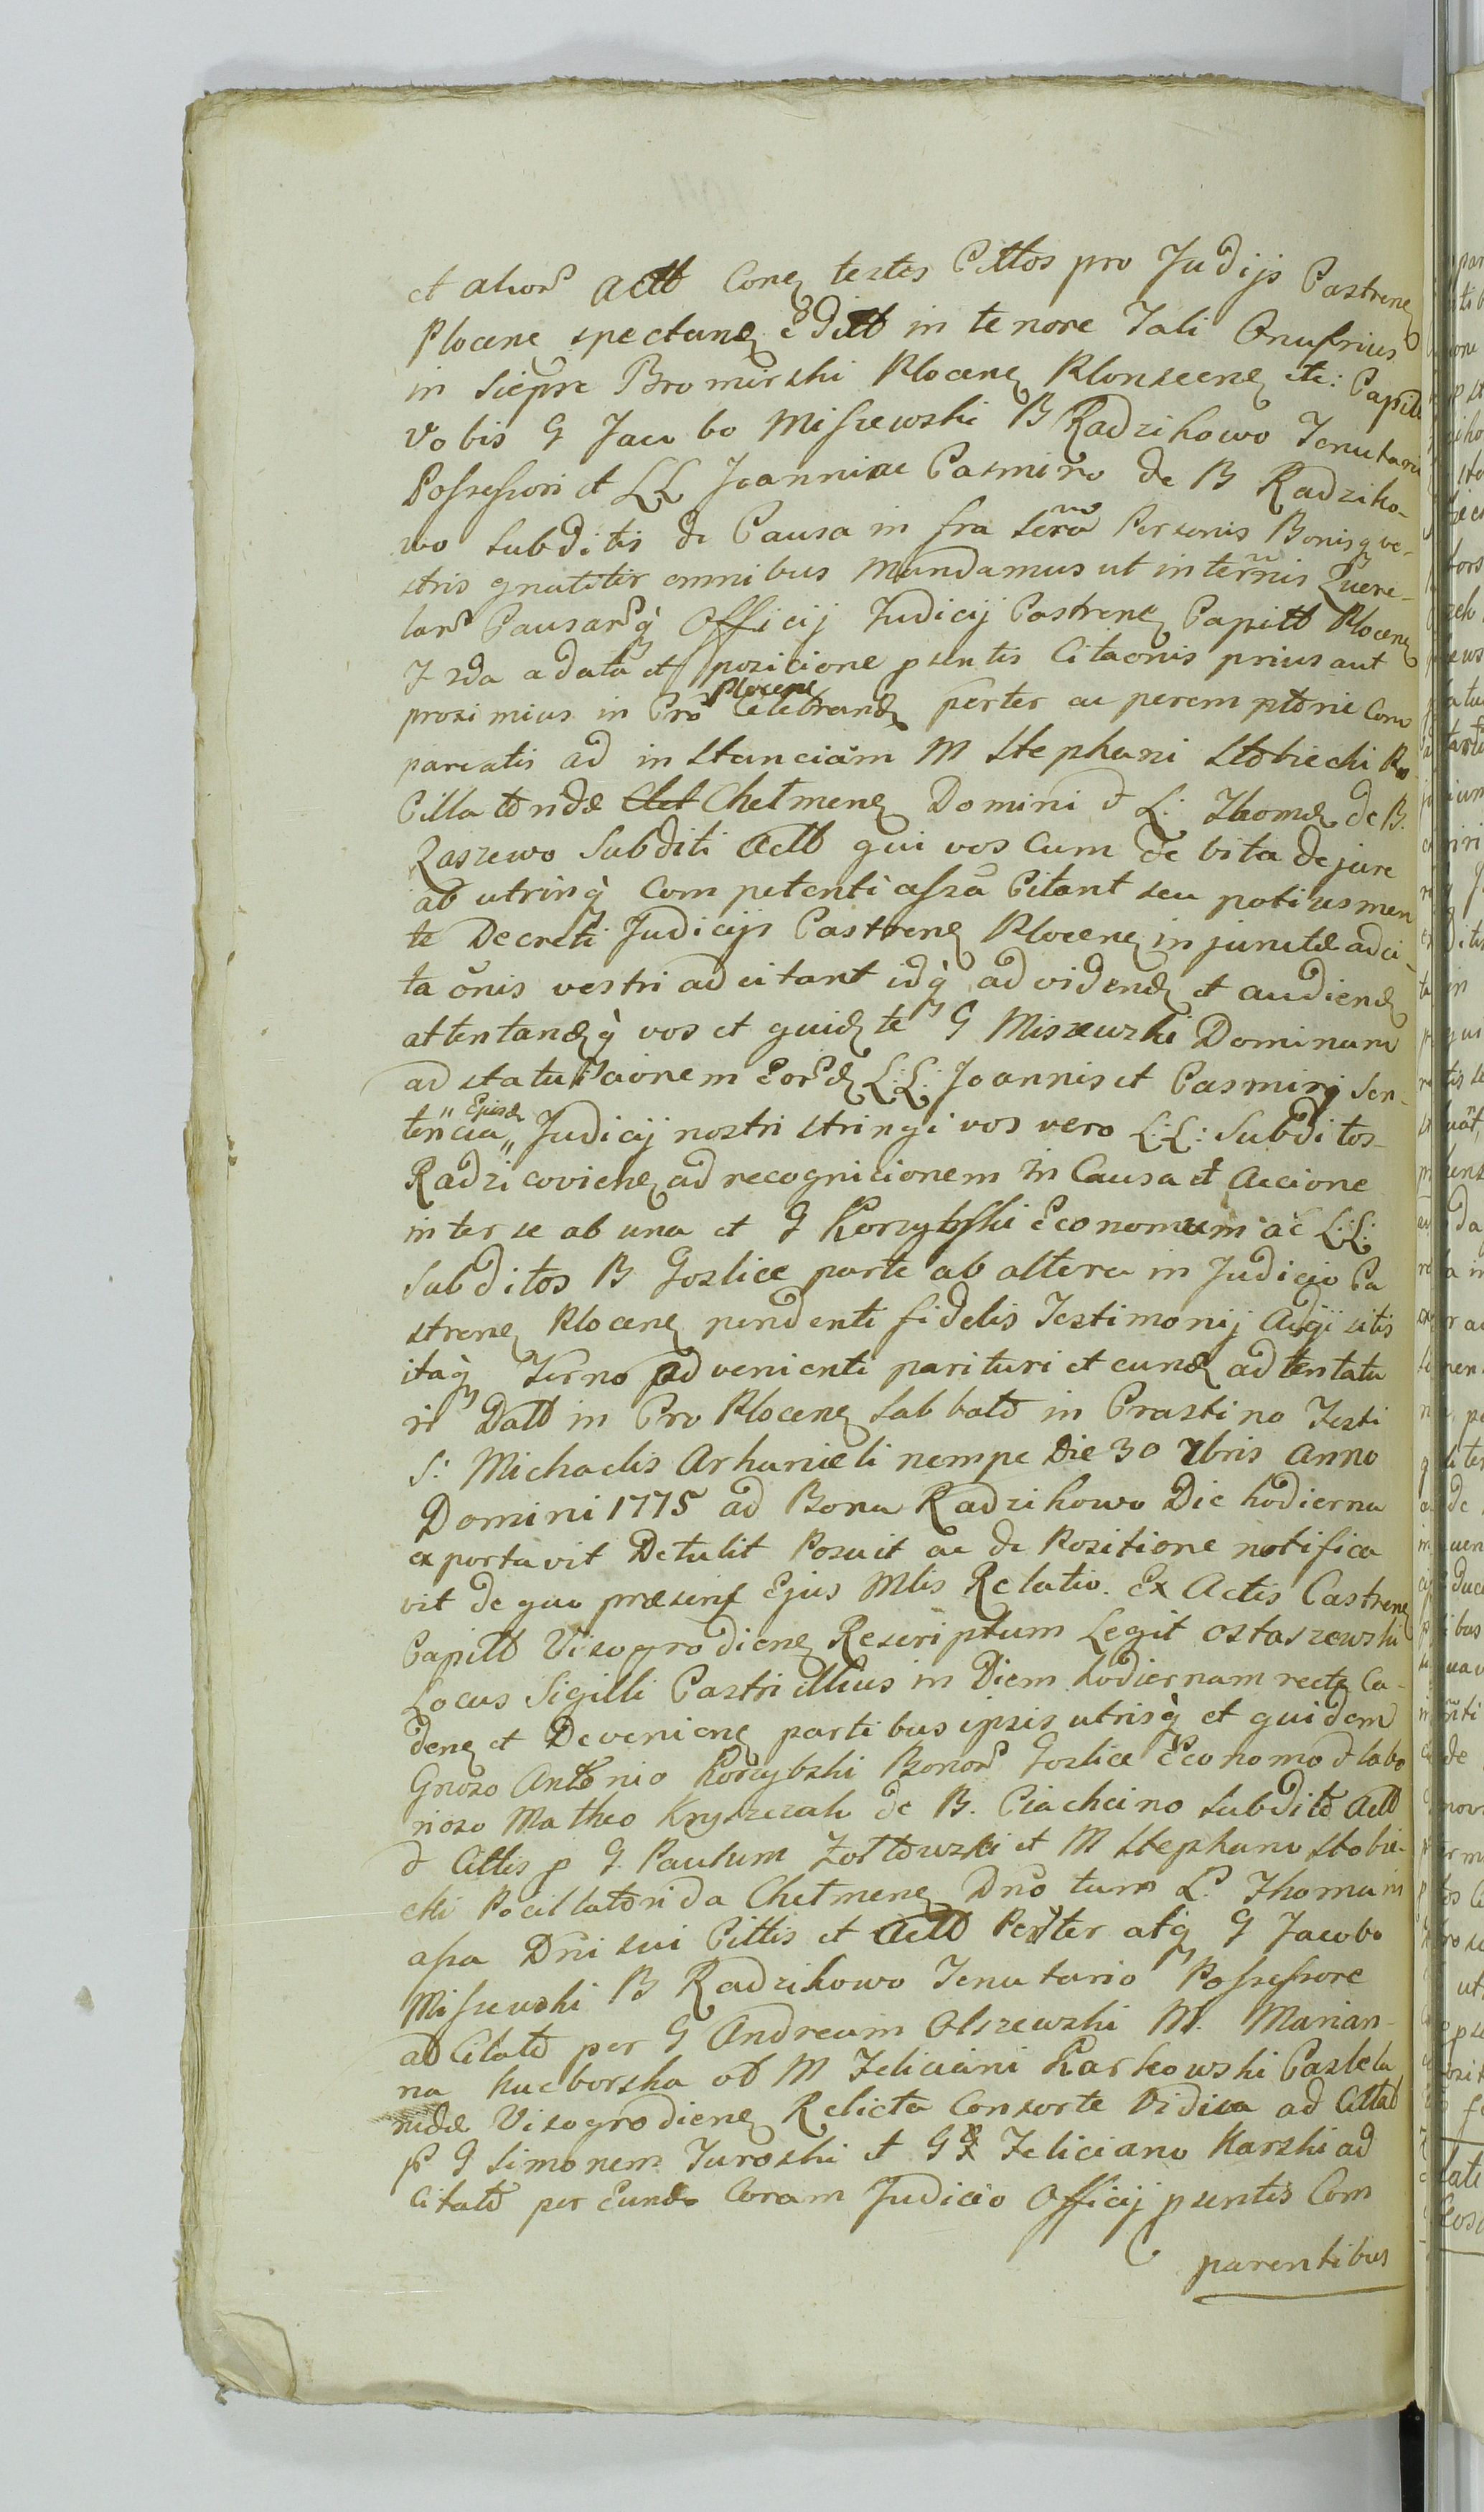 et alior actt Conen testes Cittos pro Judijs Castrene
Plocene spectane editt in tenore Tali Onufrius
in Sieprc Bromirski Plocene Plonscene etc: Capitt
Vobis G Jacobo Miszewski B Radzikowo Tenutario
Possessori et LL Joanni ac Casmiro de B Radziko-
wo Subditis de Causa infra Scra Personis Bonisq ve-
stris gnalitir omnibus Mandamus ut in ternis Quere-
lar Causarq Officij Judicij Castrene Capitt Plocene
F 2da a data et posicione psentis Citaonis prius aut
proximius in Cro Plocene Celebrand perter ac peremptorie Com
pareatis ad instanciam M Stephani Stobiecki Po
Cillatoridae Chelmene Domini & L: Thomae de B.
Raszewo Subditi Actt qui vos Cum debita de jure
ab utrinq Competenti assa Citant seu potius men
te Decreti Judicijs Castrene Plocene injunctae adci-
taonis vestri adcitant idq ad vidend et audiend
attentandq vos et quid te G Miszewski Dominum
ad statuicionem Eord L:L: Joannis et Casmirj Sen-
tencia Ejusd Judicij nostri stringi vos vero L:L: Subditos
Radzicoviene ad recognicionem in Causa et Accione
inter se ab una et G Korzybski Economum ac L:L:
Subditos B Goslice parte ab altera in Judicio Ca
strene Plocene pendenti fidelis Testimonij Adigi sitis
itaq Terno advenienti parituri et eund adtentatu
ri Datt in Cro Plocene Sabbato in Crastino Festi
S: Michaelis Arhanieli nempe Die 30 7bris Anno
Domini 1775 ad Bona Radzikowo Die hodierna
exportavit Detulit Posuit ac de Positione notifica
vit de quo praesens Ejus Mlis Relatio. Ex Actis Castrene
Capitt Visogrodiene Rescriptum Legit Ostaszewski
Locus Sigilli Castri illius in Diem hodiernam recte Ca-
dene et Deveniene partibus ipsis utrisq et quidem
Gnoso Antonio Korzybski Bonor Goslice Economo & labo
rioso Matheo Kryszczak de B. Ciachcino Subdito Actt
& Cittis p G. Paulum Zoltowski et M Stephano Stobie-
cki Pocillatorida Chelmene Dno tum L. Thomam
assa Dni sui Cittis et Actt Perter atq G Jacobo
Miszewski B Radzikowo Tenutario Possessore
adCitato per G Andream Olszewski M. Marian-
na Kucborska od M Feliciani Karkowski Castela
nidae Visogrodiene Relicta Consorte Vidua ad Cittat
p G Simonem Turoski et G Feliciano Karski ad
Citato per Eund Coram Judicio Officij psentis Com
parentibus